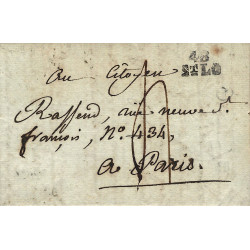 48
ST LO
au Citoyen
Raffend, rue neuve St.
françois, No. 434,
a Paris.
4